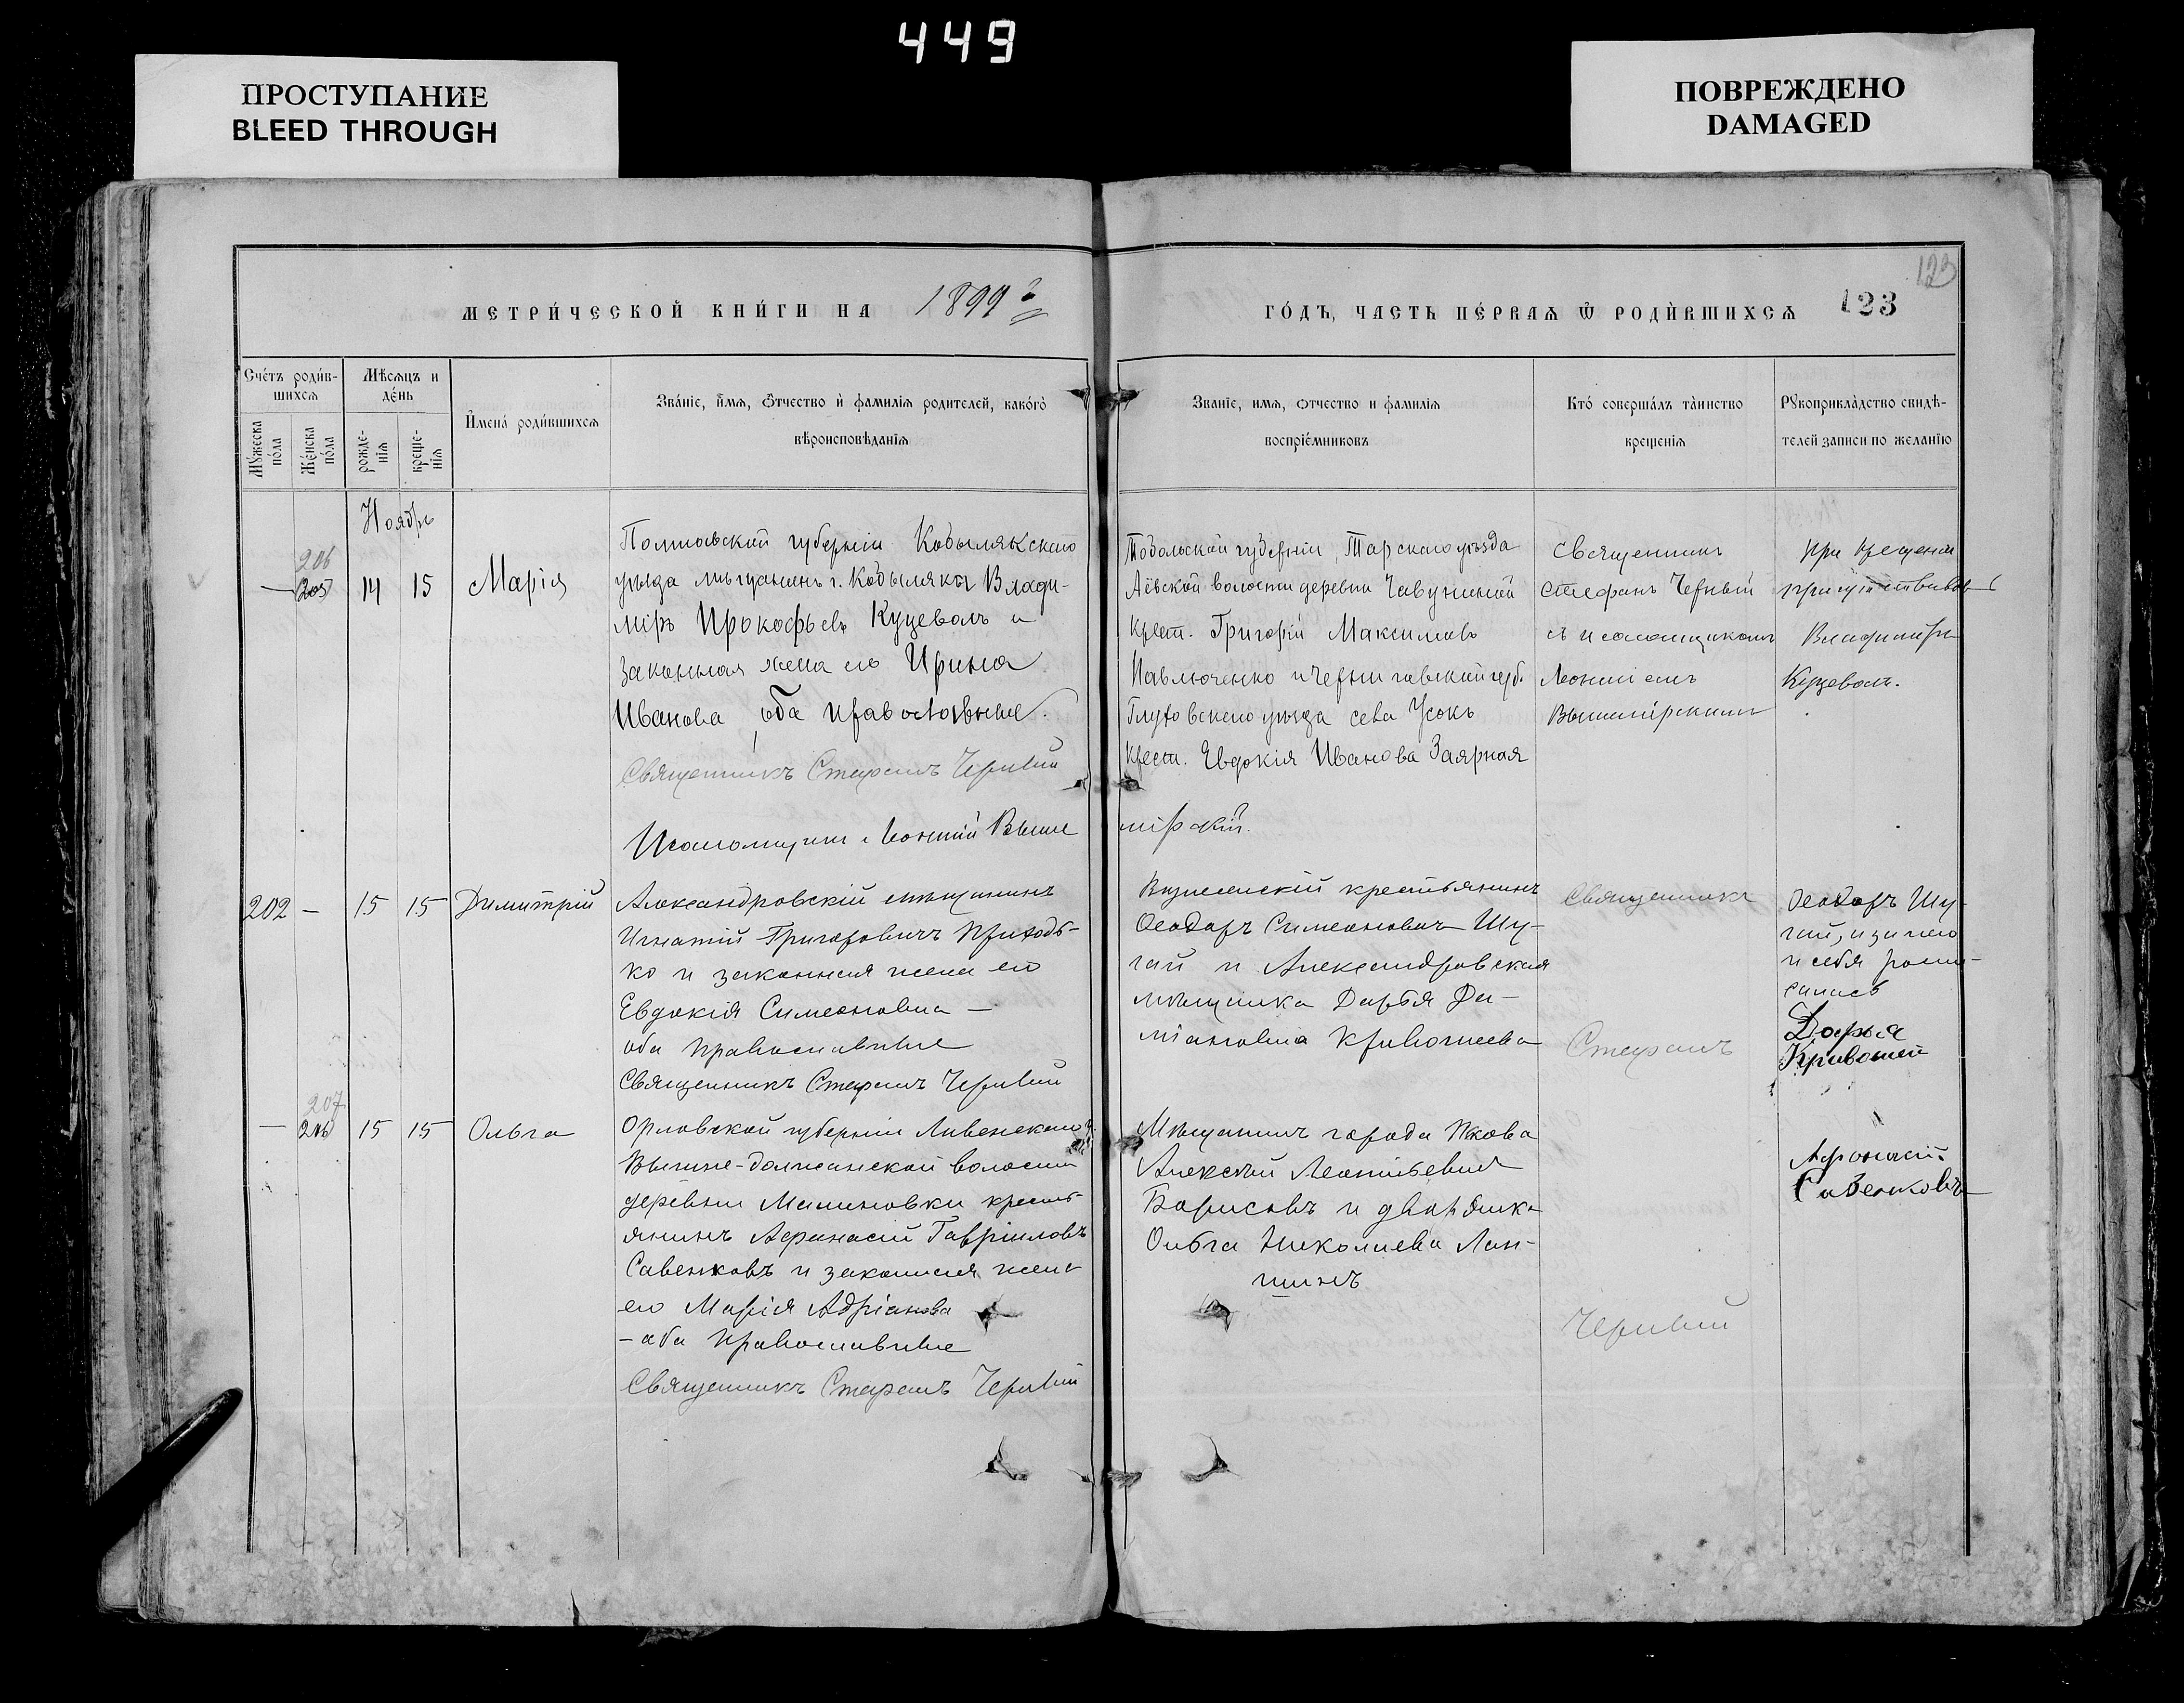 449
ПРОСТУПАНИЕ
BLEED THROUGH
ПОВРЕЖДЕНО
DAMAGED
МЕТРИ́ЧЕСКОЙ КНИ́ГИ НА 1899 г.
ГО́ДЪ, ЧАСТЬ ПЕ́РВАѦ Ѿ РОДИ́ВШИХСѦ 123
123
Сче́тъ роди́в-
шихсѧ
Мꙋ́жеска по́ла
Же́нска по́ла
Мѣ́сѧцъ и
де́нь
рожде-
нїѧ
креще-
нїѧ
Имена́ роди́вшихсѧ
Зва́нїе, имѧ, ѻтчество и фамилїѧ родителей, како́гѡ
вѣроисповѣ́данїѧ
Званїе, имѧ, ѻтчество и фамилїѧ
воспрїе́мниковъ
Кто́ соверша́лъ та́инство
креще́нїѧ
Рꙋкоприкла́дство свидѣ-
телей записи по желанїю
Ноябрь
206
— 205 14 15 Марія
Полтавской губерніи Кобылякскаго
уѣзда мѣщанинъ г. Кобыляка Влади-
міръ Прокофьевъ Куцеволъ и
законная жена его Ирина
Иванова, оба православные.
Священникъ Стефанъ Черный
Псаломщикъ Леонтій Выше
Тобольской губерніи, Тарскаго уѣзда
Аёвской волости деревни Чавуниной
крест. Григорій Максимовъ
Павлюченко и Черниговской губ.
Глуховскаго уѣзда села Усокъ
крест. Евдокія Иванова Заярная
мірскій.
Священникъ
Стефанъ Черный
съ псаломщикомъ
Леонтіемъ
Вышемірскимъ
При крещеніи
присутствовалъ
Владиміръ
Куцеволъ.
202 — 15 15 Димитрій
Александровскій мѣщанинъ
Игнатій Григоровичъ Приходь-
ко и законная жена его
Евдокія Симеоновна —
оба православные
Священникъ Стефанъ Черный
крестьянинъ
Ѳеодоръ Симеоновичъ Шу-
гай и Александровская
мѣщанка Дарья Да-
міановна Кривошеева
Священникъ
Стефанъ
Ѳеодоръ Шу-
гай, и за нею
и себя роспи-
сались
Дарья
Кривошей
207
— 206 15 15 Ольга
Орловской губерніи Ливенскаго у.
Выше-должанской волости
деревни крест-
янинъ Афанасій Гавріиловъ
Савенковъ и законная жена
его Марія Адріанова
— оба православные
Священникъ Стефанъ Черный
Мѣщанинъ города
Алексѣй Леонтьевичъ
Борисовъ и дворянка
Ольга Николаева Лан-
шинъ
Черный
Афонасій
Савенковъ